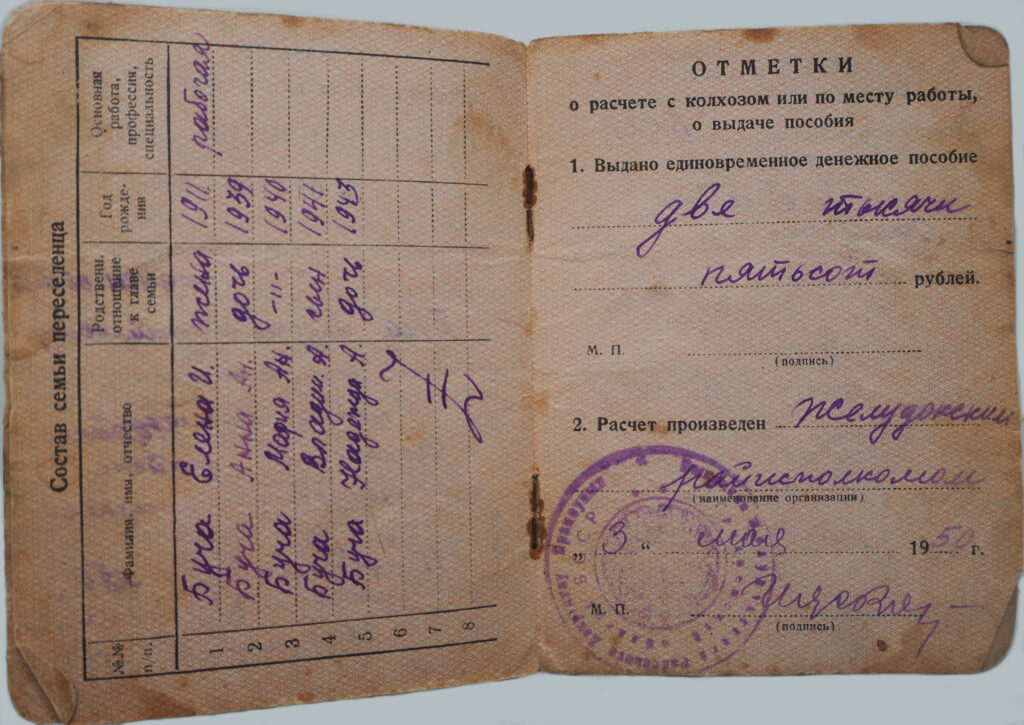 Состав семьи переселенца
№№ п/п.
Фамилия, имя, отчество
Родственн. отношение к главе семьи
Год рожде-ния
Основная работа, профессия, специальность
1 Буча Елена И. жена 1911 рабочая
2 Буча Анна Ан. дочь 1939
3 Буча Мария Ан. -"- 1940
4 Буча Владим. А. сын 1941
5 Буча Надежда А. дочь 1943
6
7
8
ОТМЕТКИ
о расчете с колхозом или по месту работы,
о выдаче пособия
1. Выдано единовременное денежное пособие
две тысячи
пятьсот рублей.
М. П.
(подпись)
2. Расчет произведен Желудокским
райисполкомом
(наименование организации)
„ 3 “ мая 1950 г.
М. П.
(подпись)
БССР